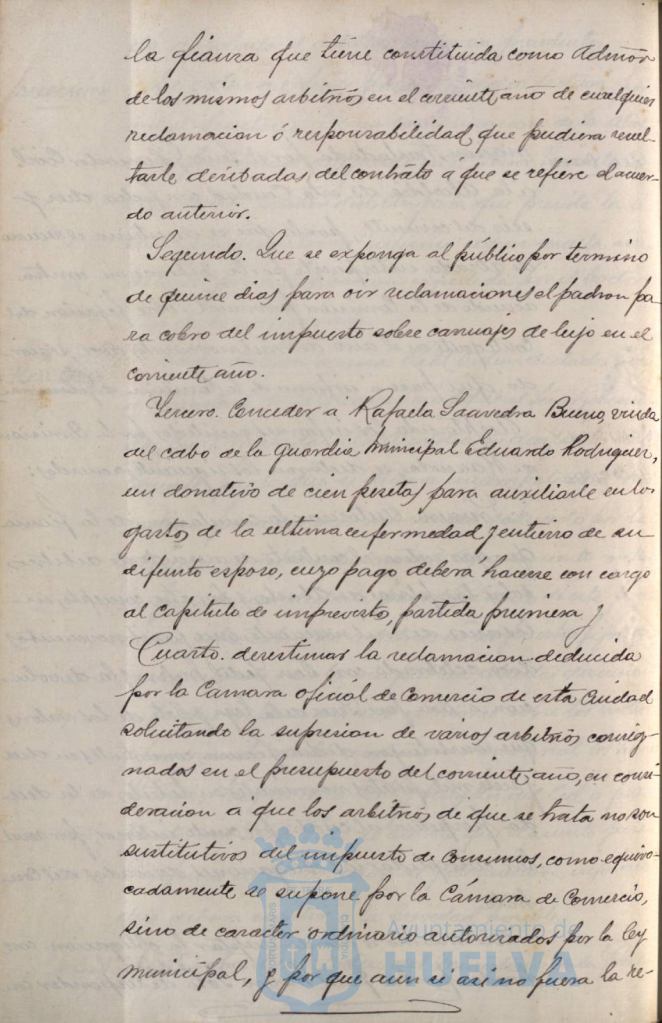 la fianza que tiene constituida como Admõr
de los mismos arbitrios en el corriente año de cualquier
reclamacion ó responsabilidad que pudiera resul-
tarle deribadas del contrato á que se refiere el acuer-
do anterior.
Segundo. Que se exponga al público por termino
de quince dias para oir reclamaciones el padron pa
ra cobro del impuesto sobre carruajes de lujo en el
corriente año.
Tercero. Conceder á Rafaela Saavedra Bueno, viuda
del cabo de la guardia municipal Eduardo Rodriguez,
un donativo de cien pesetas para auxiliarle en los
gastos de la ultima enfermedad y entierro de su
difunto esposo, cuyo pago deberá hacerse con cargo
al capitulo de imprevisto, partida primera y
Cuarto. desestimar la reclamacion deducida
por la Camara oficial de Comercio de esta Ciudad
solicitando la supresion de varios arbitrios consig-
nados en el presupuesto del corriente año, en consi
deracion á que los arbitrios de que se trata no son
sustitutivos del impuesto de Consumos, como equivo-
cadamente se supone por la Cámara de Comercio,
sino de caracter ordinario autorizados por la ley
municipal, y por que aun si asi no fuera la re-
Ayuntamiento de
HUELVA